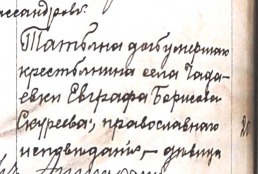 ссандровъ.
Татьяна дочь умершаго
крестьянина села Чада-
евки Евграфа Борисова
Скуреева, православнаго
исповѣданія, – дѣвица